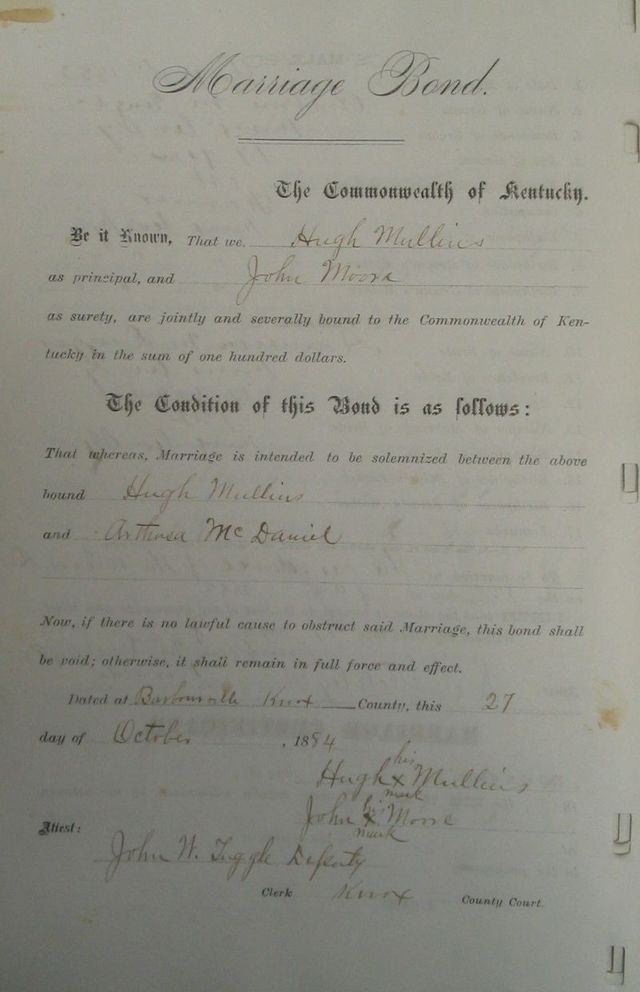 Marriage Bond.
The Commonwealth of Kentucky.
Be it Known, That we Hugh Mullins
as principal, and John Moore
as surety, are jointly and severally bound to the Commonwealth of Ken-
tucky in the sum of one hundred dollars.
The Condition of this Bond is as follows:
That whereas, Marriage is intended to be solemnized between the above
bound Hugh Mullins
and Arthusa McDaniel
Now, if there is no lawful cause to obstruct said Marriage, this bond shall
be void; otherwise, it shall remain in full force and effect.
Dated at Barbourville Knox County, this 27
day of October, 1884
his
Hugh x Mullins
mark
his
John x Moore
mark
Attest:
John W. Tuggle Deputy
Clerk Knox County Court.